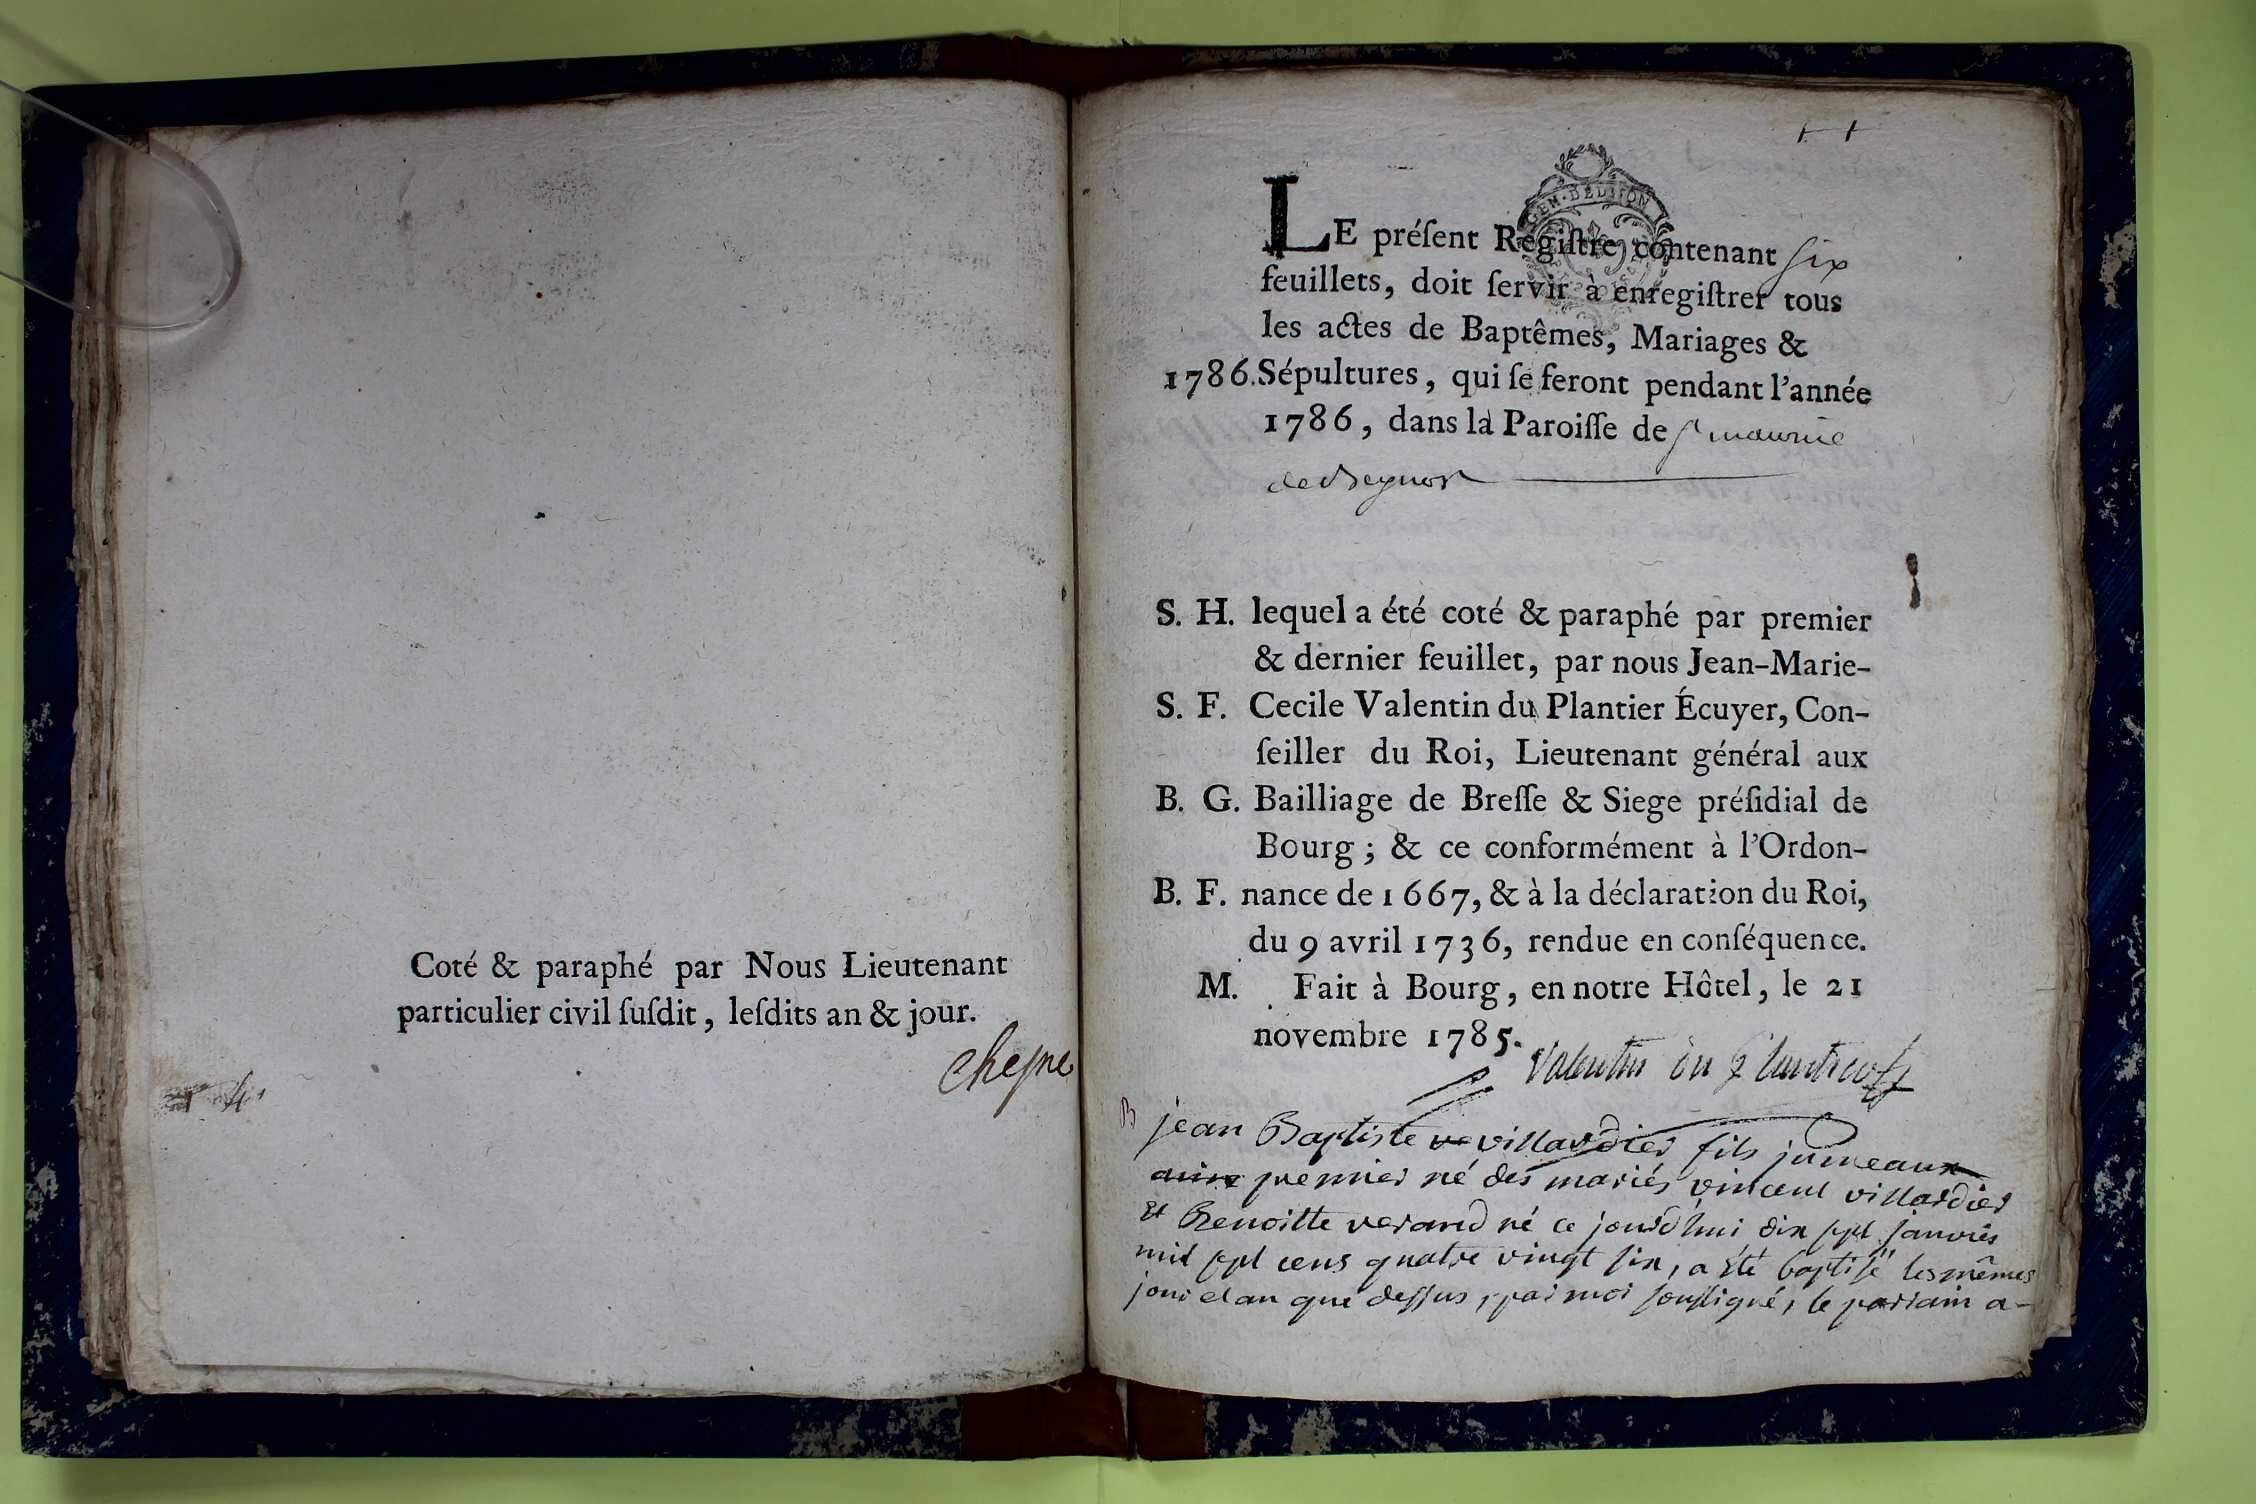 Coté & paraphé par Nous Lieutenant
particulier civil ſuſdit, leſdits an & jour.
GEN. BED
LE préſent Regiſtre contenant six
feuillets, doit ſervir à enregiſtrer tous
les actes de Baptêmes, Mariages &
1786. Sépultures, qui ſe feront pendant l'année
1786, dans la Paroiſſe de St maurice
de Beynost
S. H. lequel a été coté & paraphé par premier
& dernier feuillet, par nous Jean-Marie-
S. F. Cecile Valentin du Plantier Écuyer, Con-
ſeiller du Roi, Lieutenant général aux
B. G. Bailliage de Breſſe & Siege préſidial de
Bourg ; & ce conformément à l'Ordon-
B. F. nance de 1667, & à la déclaration du Roi,
du 9 avril 1736, rendue en conſéquence.
M. Fait à Bourg, en notre Hôtel, le 21
novembre 1785.
Valentin du Plantier
B jean Baptiste villardier fils jumeaux
premier né des mariés vincent villardier
et Benoitte verand né ce jourd'hui dix sept janvier
mil sept cens quatre vingt six, a été baptisé les mêmes
jour et an que dessus, par moi soussigné, le parrain a-